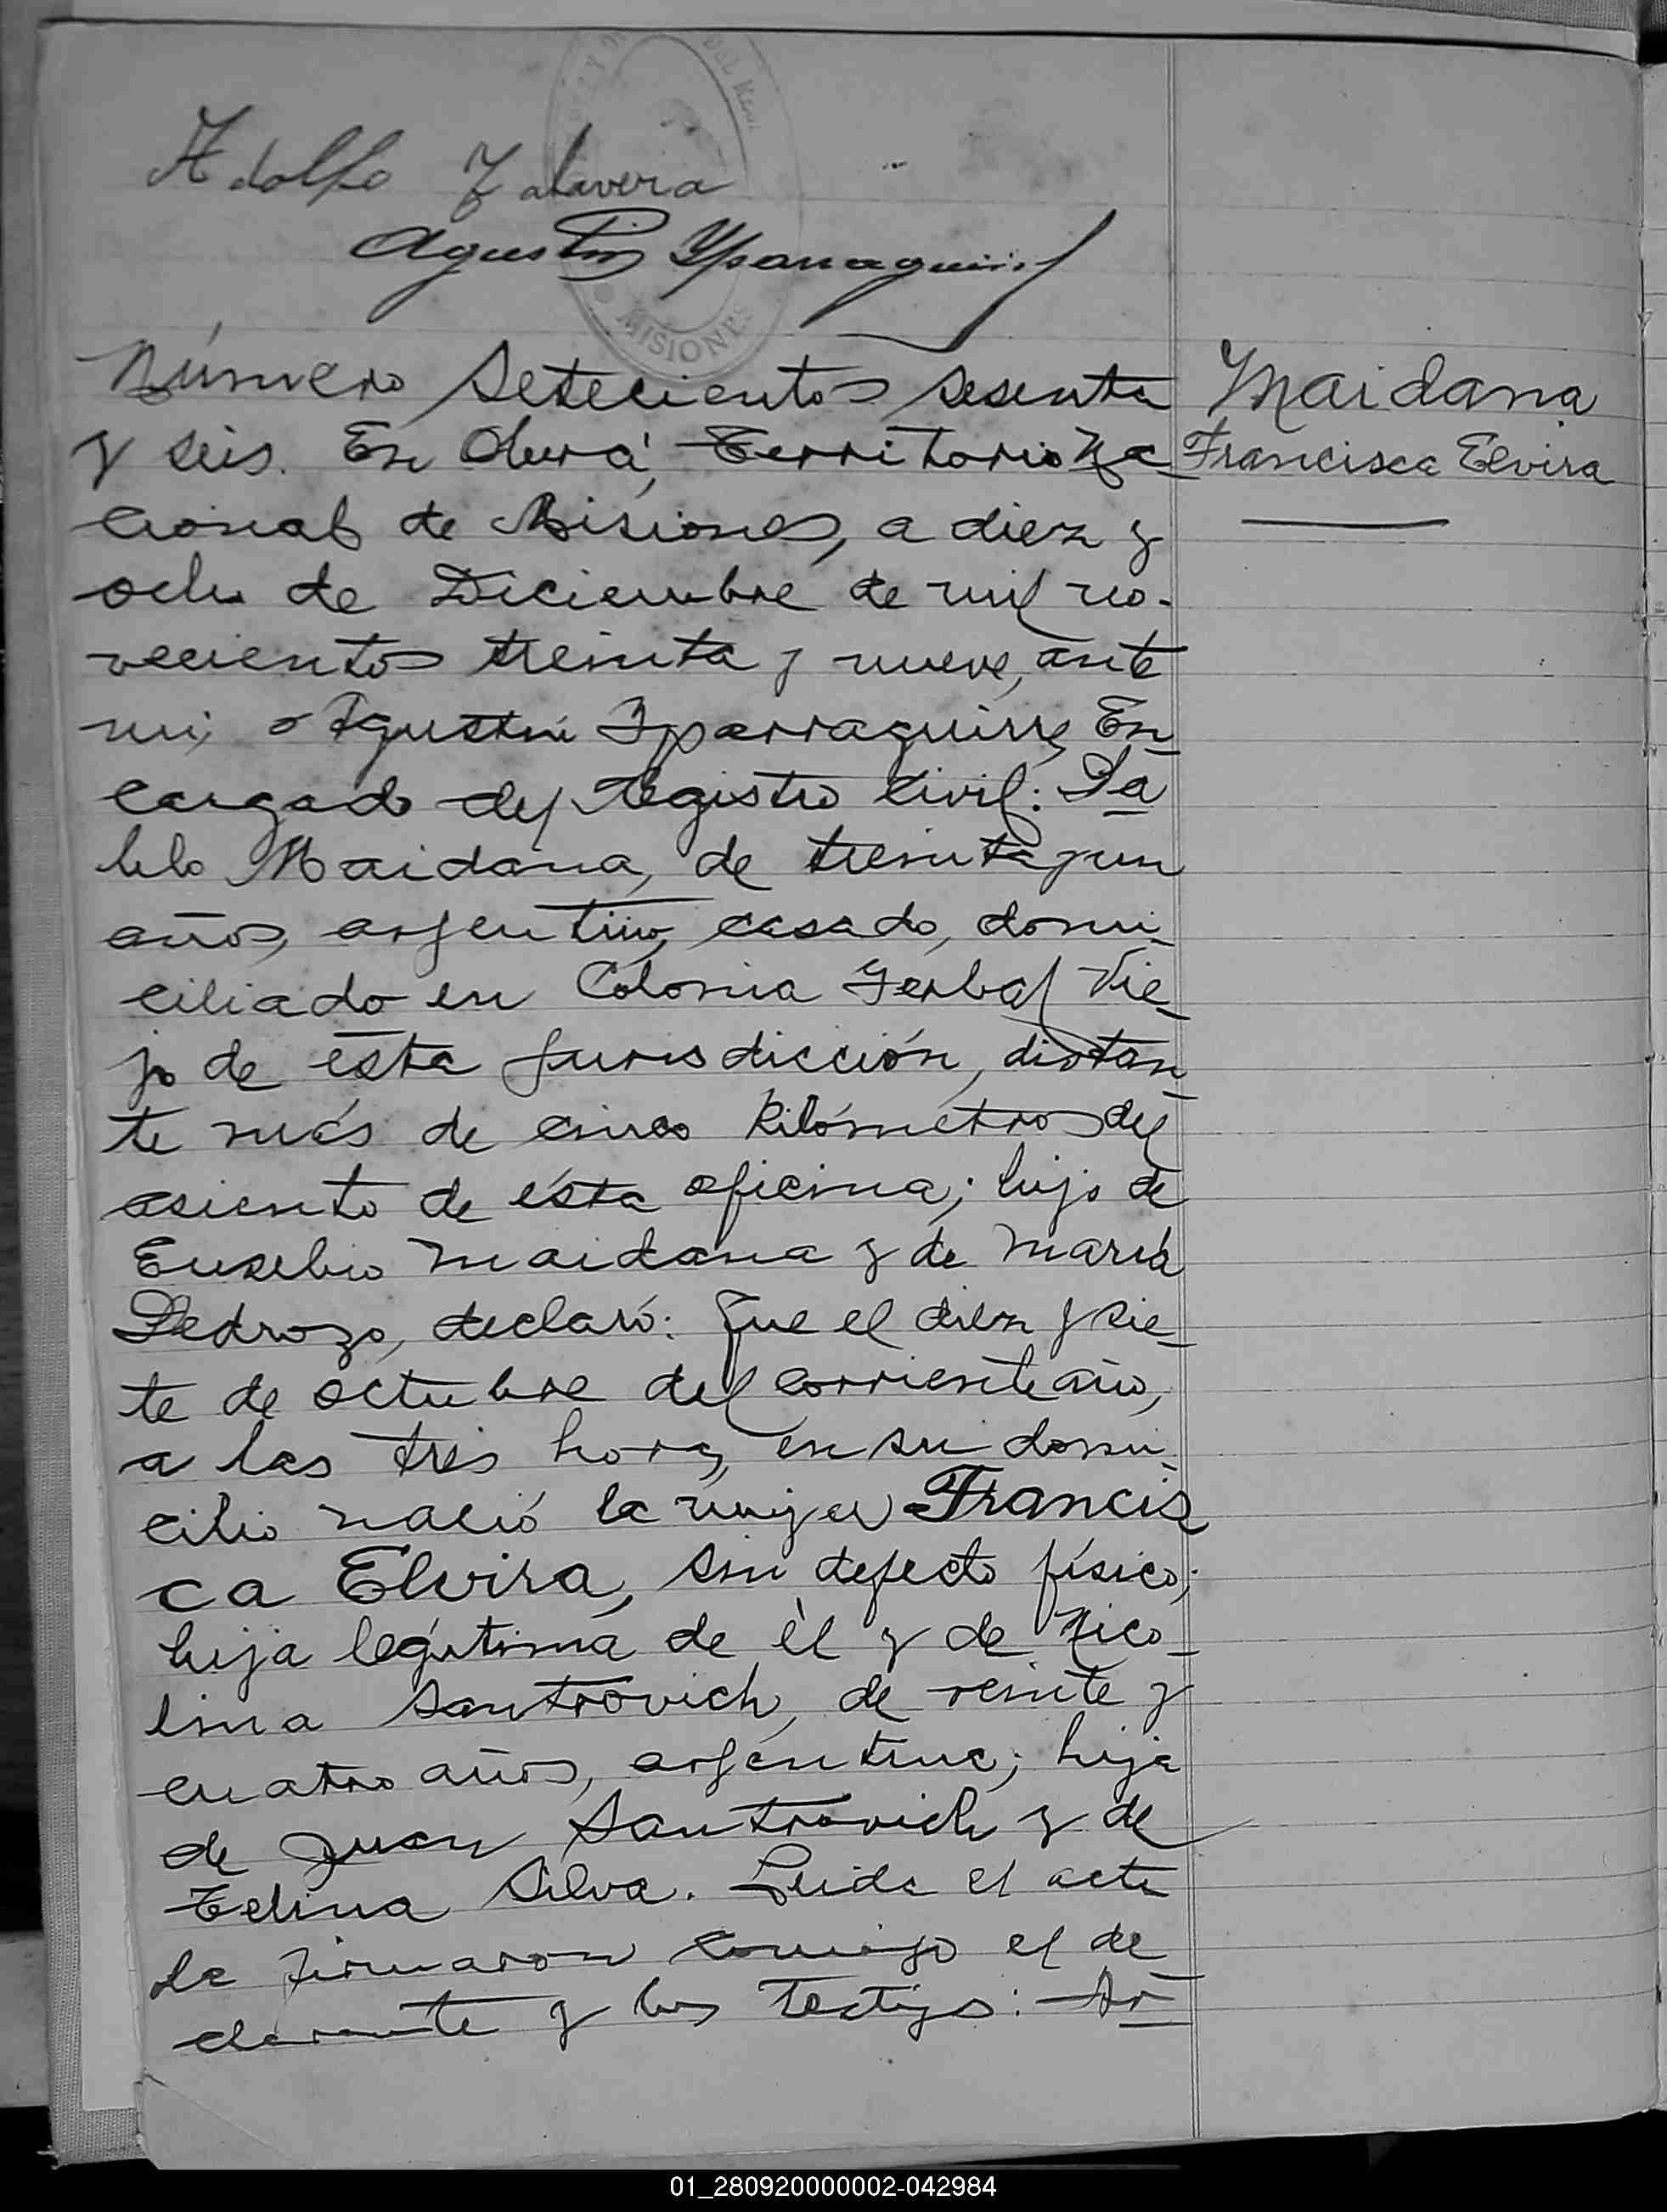 Adolfo Talavera
Agustin Yparraguirre
MISIONES
Número setecientos sesenta
y seis. En Oberá, Territorio Na
cional de Misiones, a diez y
ocho de Diciembre de mil no-
vecientos treinta y nueve, ante
mi, Agustín Iparraguirre, En
cargado del Registro Civil: Pa
blo Maidana, de treinta y un
años, argentino, casado, domi-
ciliado en Colonia Yerbal Vie-
jo de ésta jurisdicción, distan-
te más de cinco kilómetros del
asiento de ésta oficina; hijo de
Eusebio Maidana y de María
Pedrozo, declaró: Que el diez y sie-
te de octubre del corriente año,
a las tres horas, en su domi-
cilio nació la mujer Francis
ca Elvira, sin defecto físico;
hija legítima de él y de Nico-
lina Santrovich, de veinte y
cuatro años, argentina; hija
de Juan Santrovich y de
Telina Silva. Leida el acta
la firmaron conmigo el de
clarante y los testigos: Ar
Maidana
Francisca Elvira
01_280920000002-042984